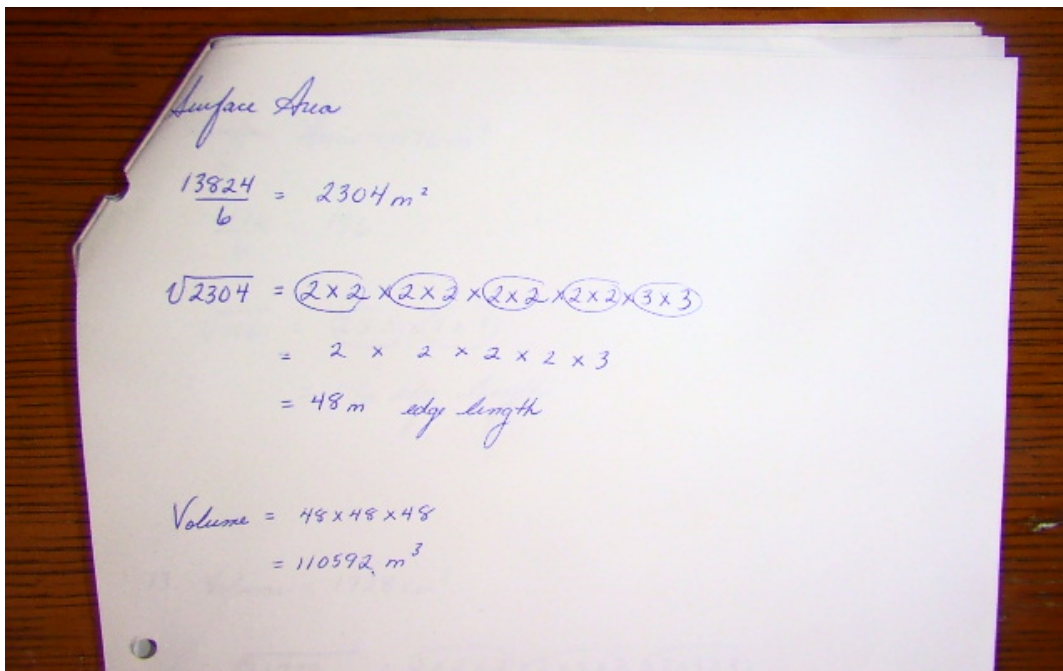 Surface Area
13824/6 = 2304 m²
√2304 = 2×2×2×2×2×2×2×2×3×3
= 2 × 2 × 2 × 2 × 3
= 48 m edge length
Volume = 48×48×48
= 110592 m³